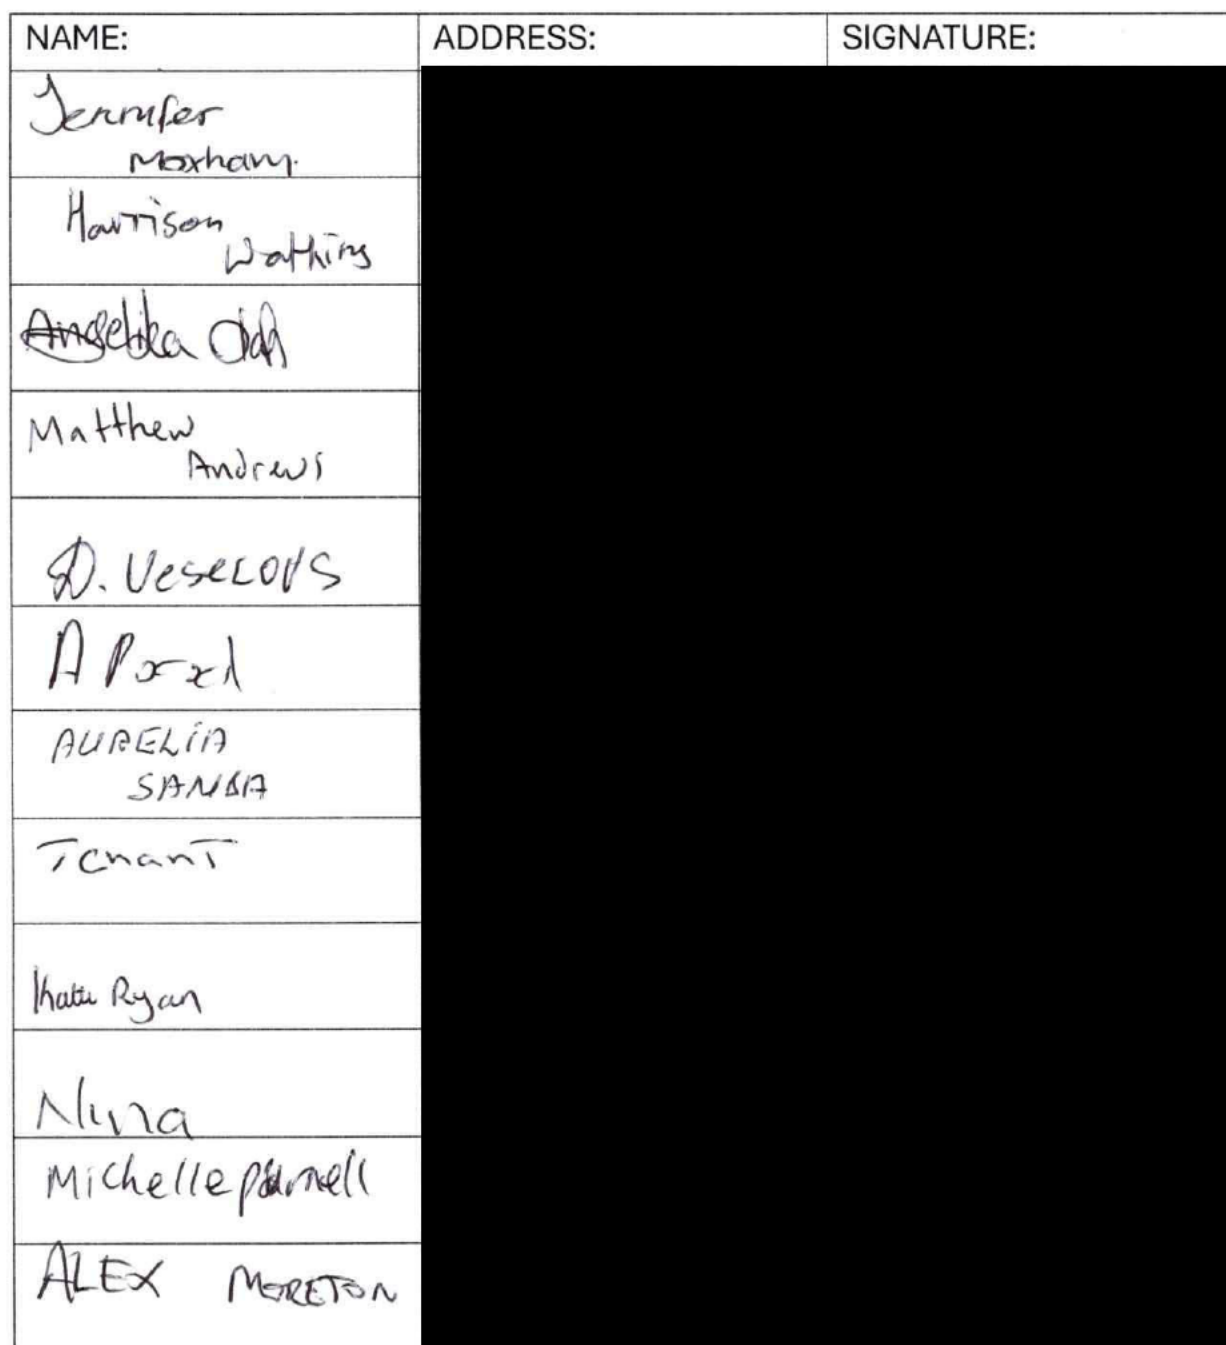 NAME: ADDRESS: SIGNATURE:
Jennifer
Moxham.
Harrison
Watkins
Angelika
Matthew
Andrews
D. Veselovs
A
AURELIA
SANDA
Tenant
Katie Ryan
Nina
Michelle parnell
ALEX MORETON